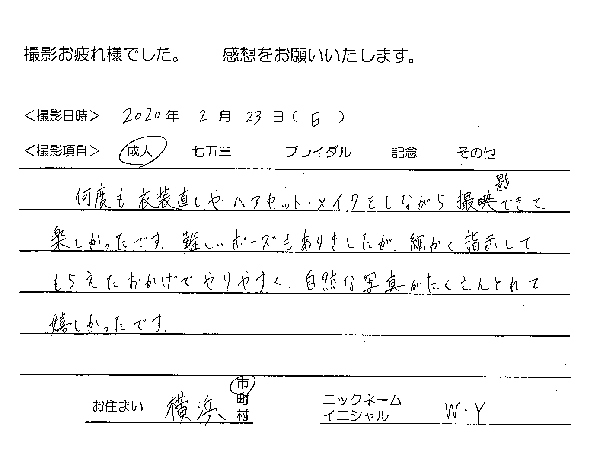 撮影お疲れ様でした。 感想をお願いいたします。
<撮影日時> 2020年 2月 23日(日)
<撮影項目> 成人 七五三 ブライダル 記念 その他
影
何度も衣装直しやヘアセット・メイクをしながら撮映できて
楽しかったです。難しいポーズもありましたが、細かく指示して
もらえたおかげでやりやすく、自然な写真がたくさんとれて
嬉しかったです。
お住まい 横浜 市町村 ニックネーム イニシャル W.Y